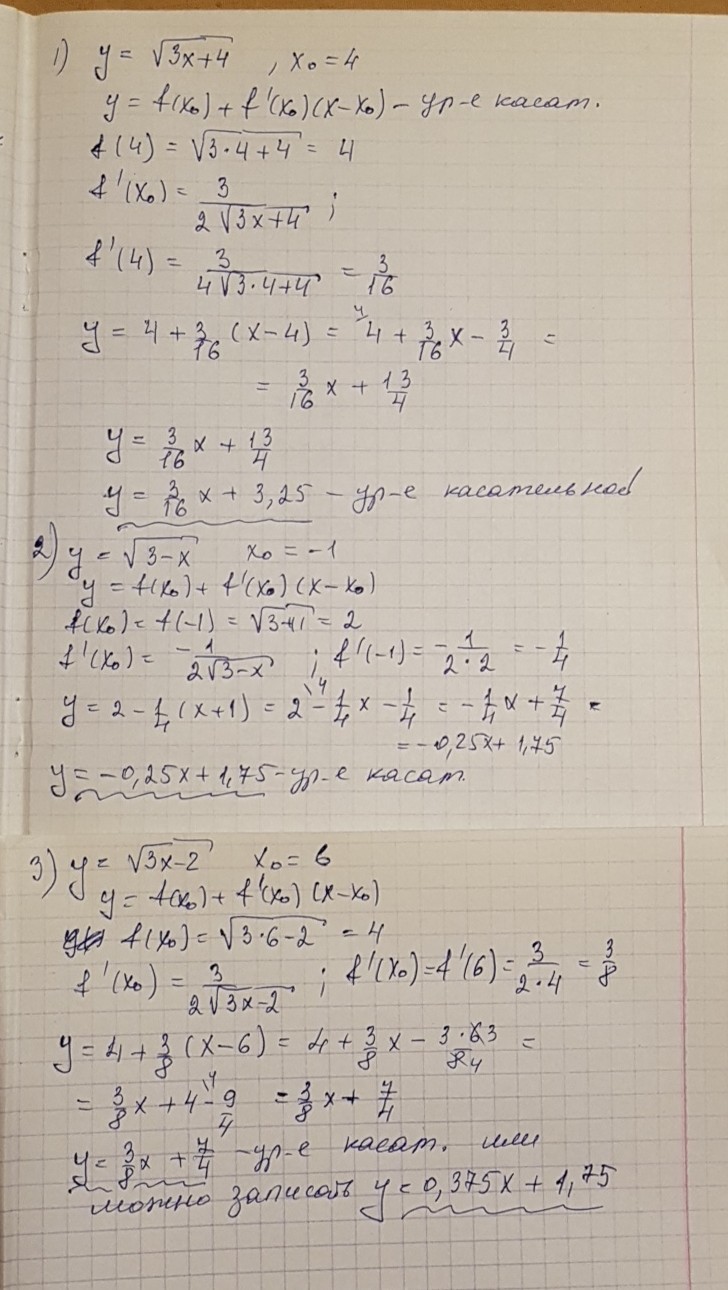 1) y = √(3x+4) , x₀ = 4
y = f(x₀) + f'(x₀)(x-x₀) - ур-е касат.
f(4) = √(3·4+4) = 4
f'(x₀) = 3/(2√(3x+4)) ;
f'(4) = 3/(4√(3·4+4)) = 3/16
y = 4 + 3/16 (x-4) = 4 + 3/16 x - 3/4 =
= 3/16 x + 13/4
y = 3/16 x + 13/4
y = 3/16 x + 3,25 - ур-е касательной
2) y = √(3-x) x₀ = -1
y = f(x₀) + f'(x₀)(x-x₀)
f(x₀) = f(-1) = √(3+1) = 2
f'(x₀) = -1/(2√(3-x)) ; f'(-1) = -1/(2·2) = -1/4
y = 2 - 1/4 (x+1) = 2 - 1/4 x - 1/4 = -1/4 x + 7/4 =
= -0,25x + 1,75
y = -0,25x + 1,75 - ур-е касат.
3) y = √(3x-2) x₀ = 6
y = f(x₀) + f'(x₀)(x-x₀)
f(x₀) = √(3·6-2) = 4
f'(x₀) = 3/(2√(3x-2)) ; f'(x₀) = f'(6) = 3/(2·4) = 3/8
y = 4 + 3/8 (x-6) = 4 + 3/8 x - 3·6 3/8 4 =
= 3/8 x + 4 - 9/4 = 3/8 x + 7/4
y = 3/8 x + 7/4 - ур-е касат. или
можно записать y = 0,375x + 1,75